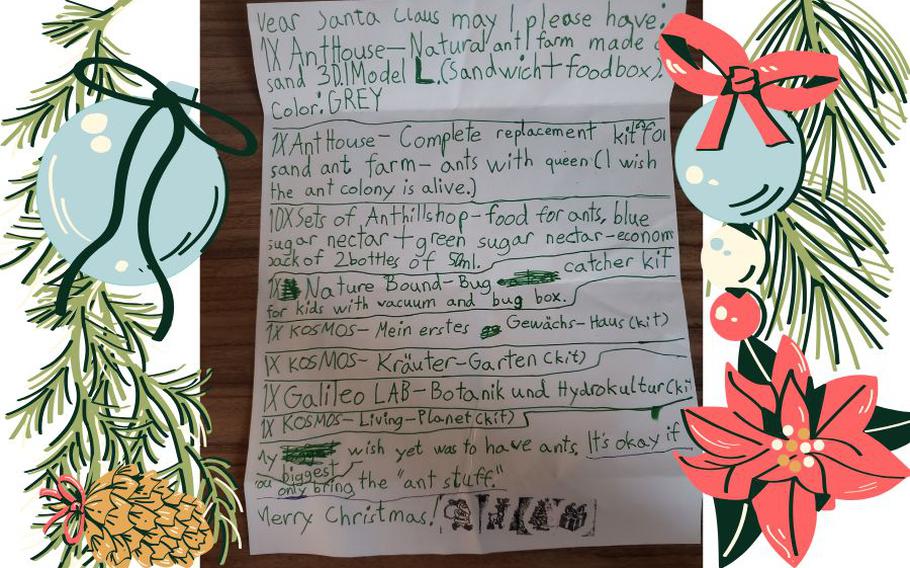 Dear Santa Claus may I please have:
1X AntHouse-Natural ant farm made
sand 3D1Model L (Sandwich+foodbox).
Color: GREY
1X AntHouse- Complete replacement kit for
sand ant farm- ants with queen (I wish
the ant colony is alive.)
10X Sets of Anthillshop-food for ants, blue
sugar nectar + green sugar nectar-econom
pack of 2bottles of 50ml.
1X Nature Bound-Bug catcher kit
for kids with vacuum and bug box.
1X KOSMOS- Mein erstes Gewächs-Haus (kit)
1X KOSMOS- Kräuter-Garten (kit)
1X Galileo LAB-Botanik und Hydrokultur (ki
1X KOSMOS-Living-Planet (kit)
My biggest wish yet was to have ants. It's okay if
you only bring the "ant stuff."
Merry Christmas!